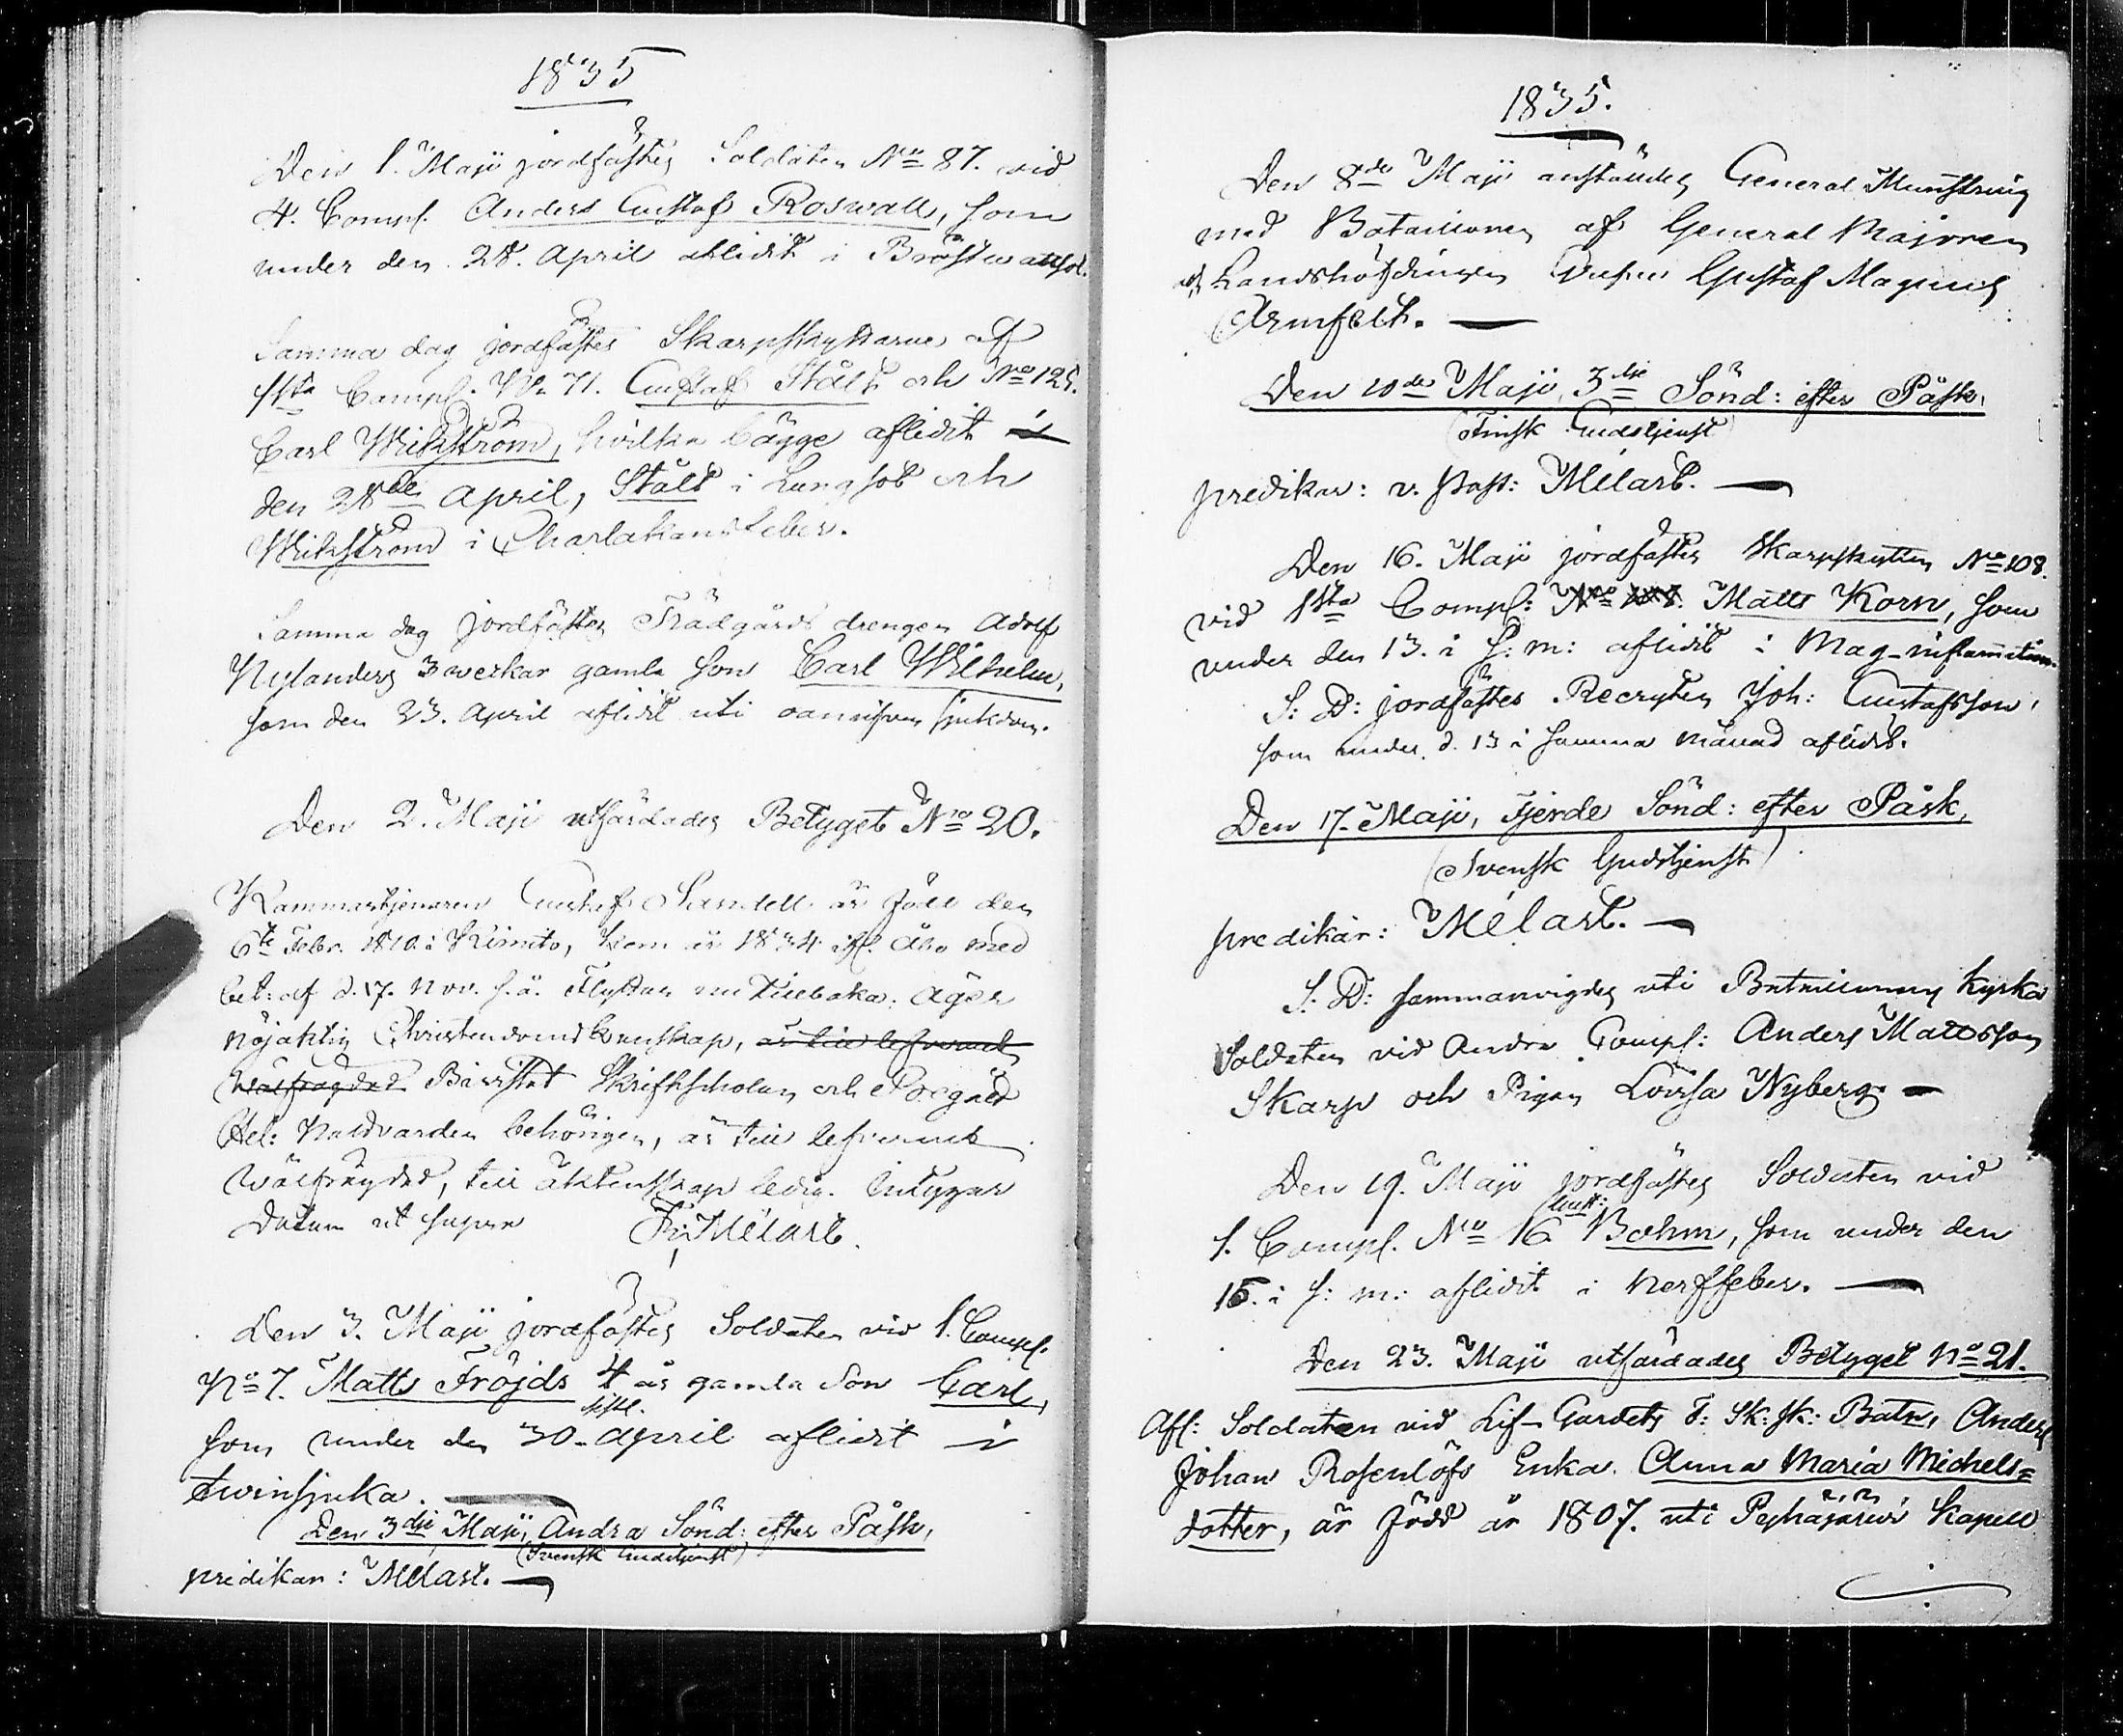 1835
Den 1. Maji jordfästes Soldaten No 87. vid
4. Comp. Anders Gustaf Roswall, som
under den 28. April aflidit i Bröstwattsot.
Samma dag jordfästes Skarpskyttarne af
1sta Comp. No 71. Gustaf Stålt och No 125.
Carl Wikström, hvilka bägge aflidit i
den 28de April, Stålt i Lungsot och
Wikström i Charlakansfeber.
Samma dag jordfästes Trädgårds drengen Adolf
Nylanders 3 weckar gamla son Carl Wilhelm,
som den 23. April aflidit uti oannifven sjukdom.
Den 2. Maji utfärdades Betyget No 20.
Kammartjenaren Gustaf Sandell är född den
6te Febr. 1810 i Kimito, kom år 1834 ifr. Åbo med
bet: af d. 17. Nov. s. å. Flyttar nu tillbaka. Äger
nöjaktig Christendomskunskap, är till lefvernet
wälfrägdad Bivistat Skriftskolan och Begått
Hel: Nattvarden behörigen, är till lefvernet
wälfrägdad, till äktenskap ledig. Intygar
Datum ut supra Fr: Mélart.
Den 3. Maji jordfästes Soldaten vid 1. Comp.
No 7. Matts Fröjds 4 år gamla Son Carl,
som under den 30. April aflidit i
twinsjuka.
Den 3dje Maji, Andra Sönd: efter Påsk,
(Svensk Gudstjenst)
predikar: Mélart.
1835.
Den 8de Maji anstäldes General Munstring
med Batailionen af General Majoren
och Landshöfdingen Gustaf Magnus
Armfelt.
Den 10de Maji, 3dje Sönd: efter Påsk,
(Finsk Gudstjenst)
predikar: v. Past: Mélart.
Den 16. Maji jordfästes Skarpskytten No 108.
vid 1sta Comp: No 108. Matts Korn, som
under den 13. i s: m: aflidit i Mag-inflamation.
S: D: jordfästes Recryten Joh: Gustafsson,
som under d. 13 i samma månad aflidit.
Den 17. Maji, Fjerde Sönd: efter Påsk,
(Svensk Gudstjenst)
predikar: Mélart.
S: D: sammanvigdes uti Batailionens Kyrka
Soldaten vid Andra Comp: Anders Mattsson
Skarp och Pigan Lovisa Nyberg.
Den 19. Maji jordfästes Soldaten vid
Gust:
1. Comp. No 16. Bohm, som under den
15. i s: m: aflidit i Nerffeber.
Den 23. Maji utfärdades Betyget No 21.
Afl: Soldaten vid Lif-Gardets F: Sk: sk: Batn, Anders
Johan Rosenlöfs Enka. Anna Maria Michels=
dotter, är född år 1807. uti Pyhäjärvi Kapell